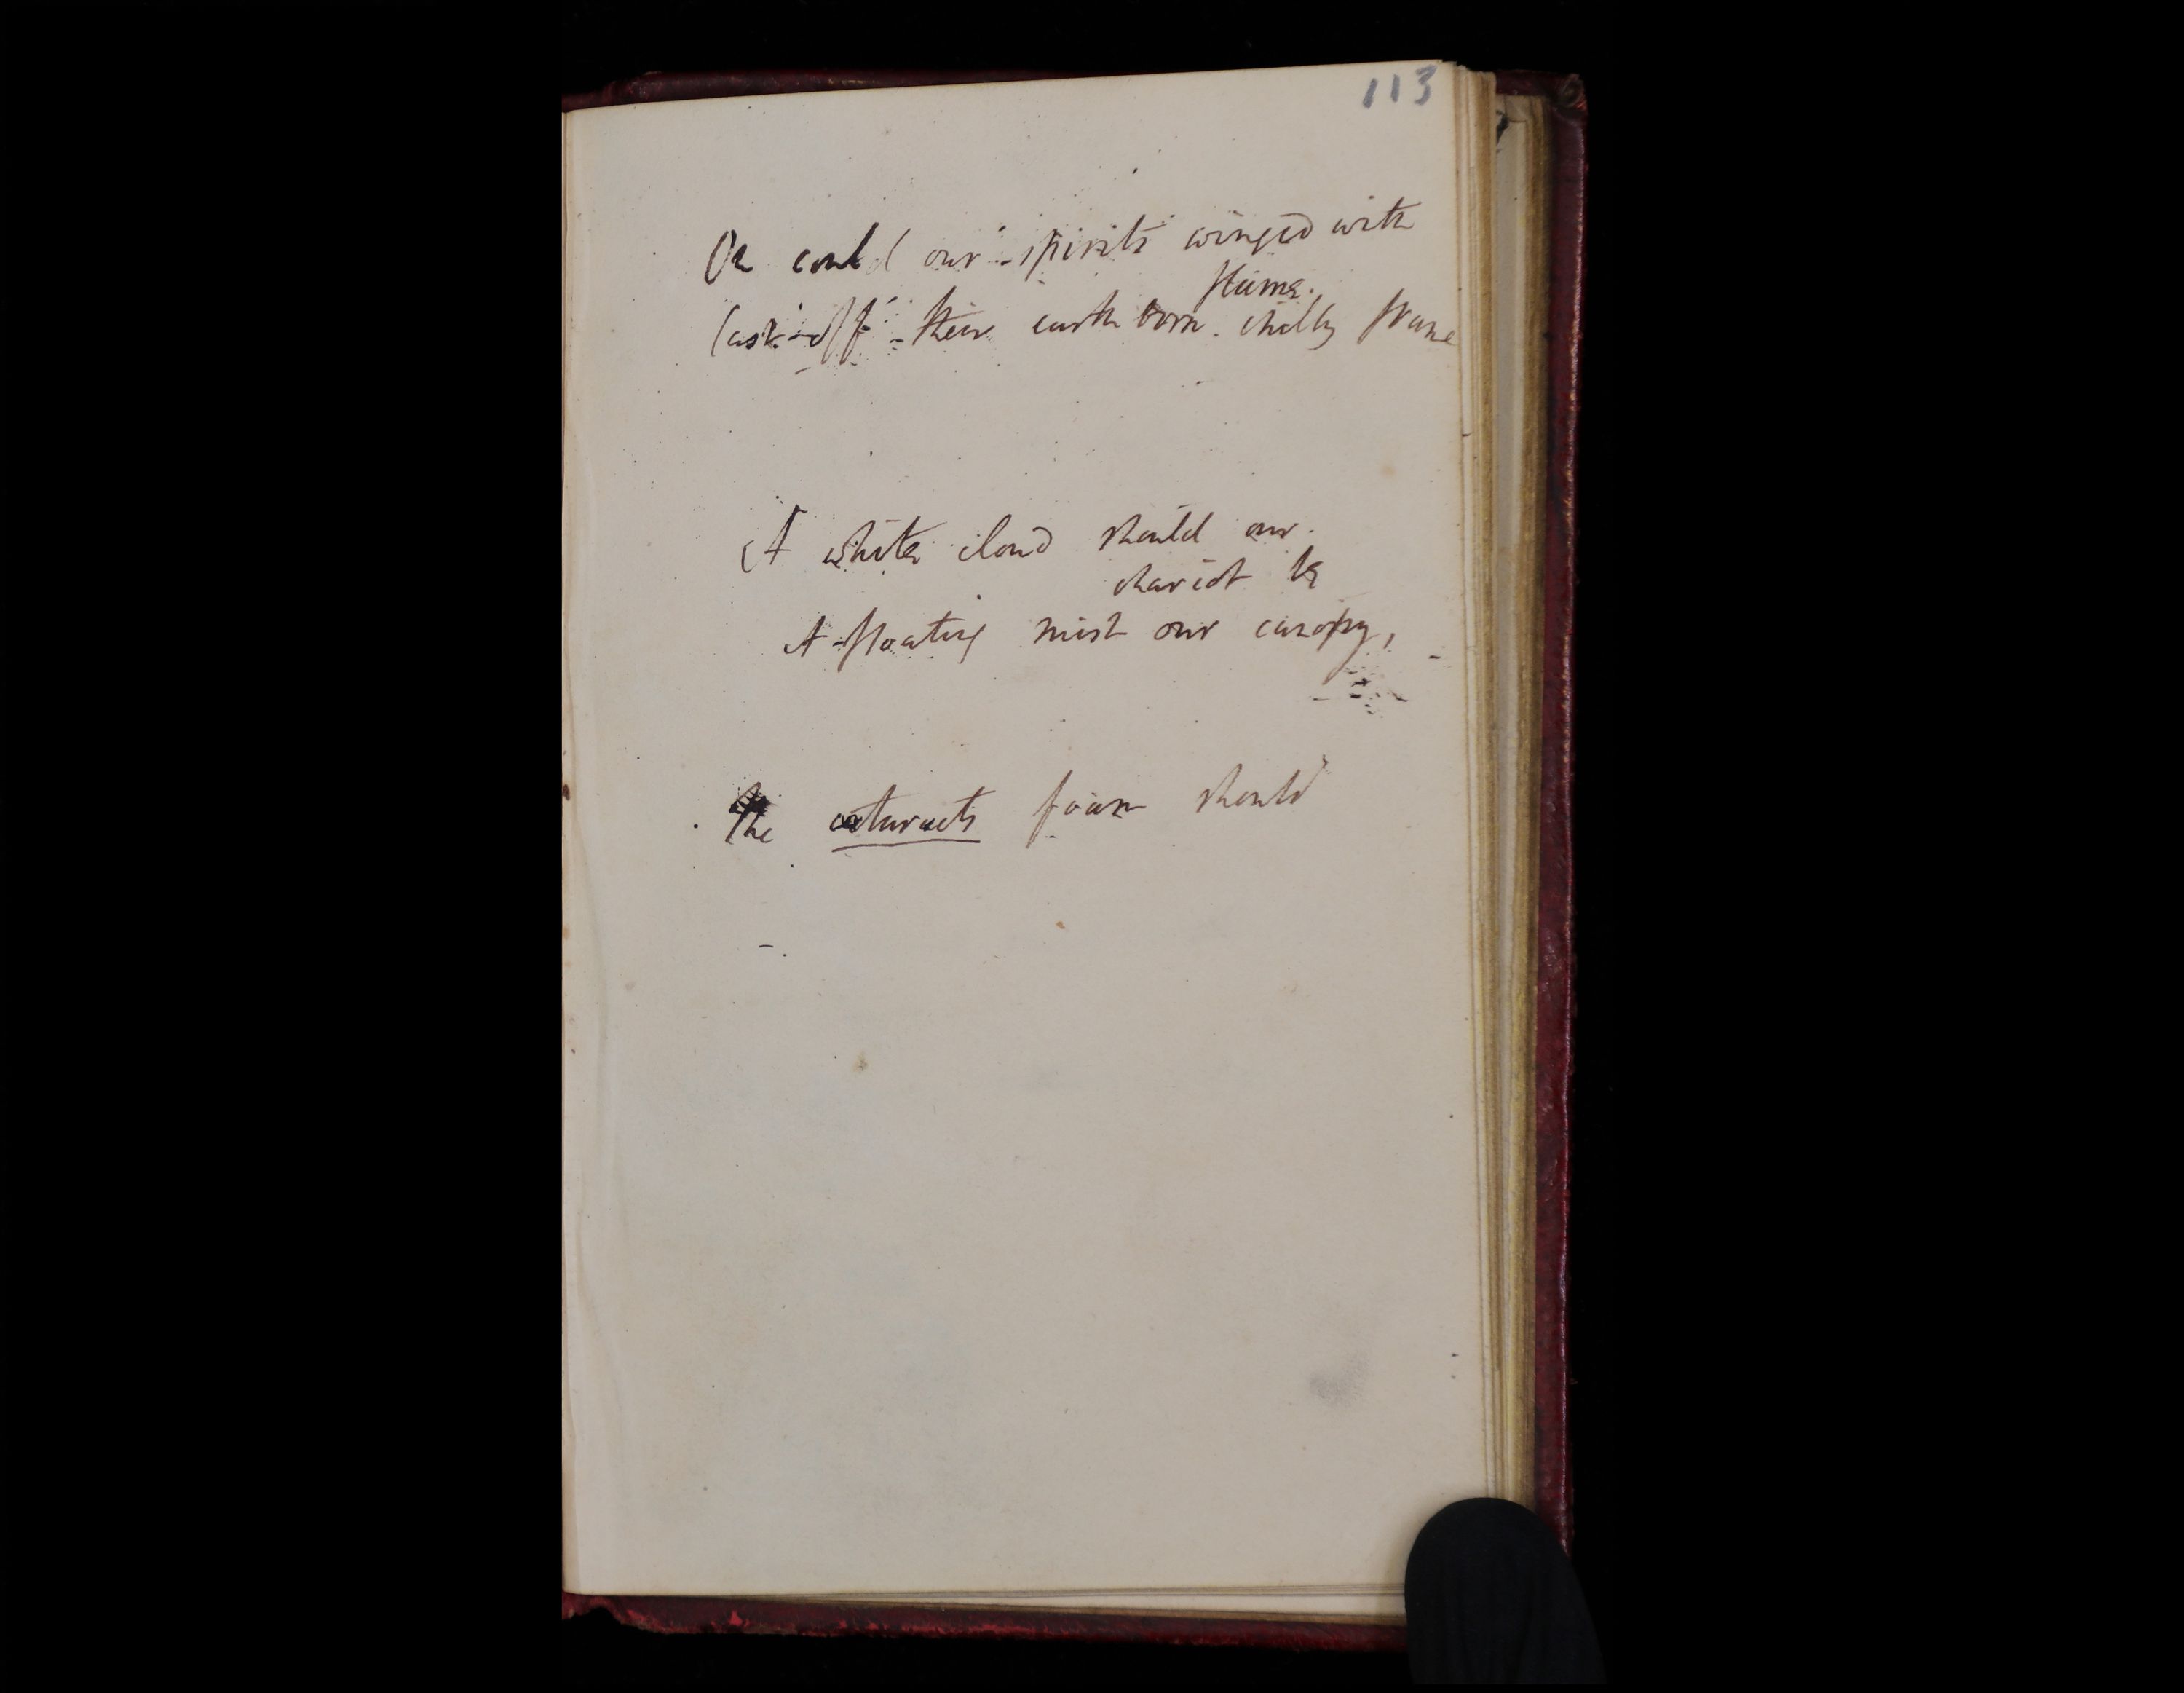 113
Oh could our spirits winged with
flame.
Cast off their earth born chilly frame
A white cloud should our.
chariot be
A floating mist our canopy,
The cataracts foam should